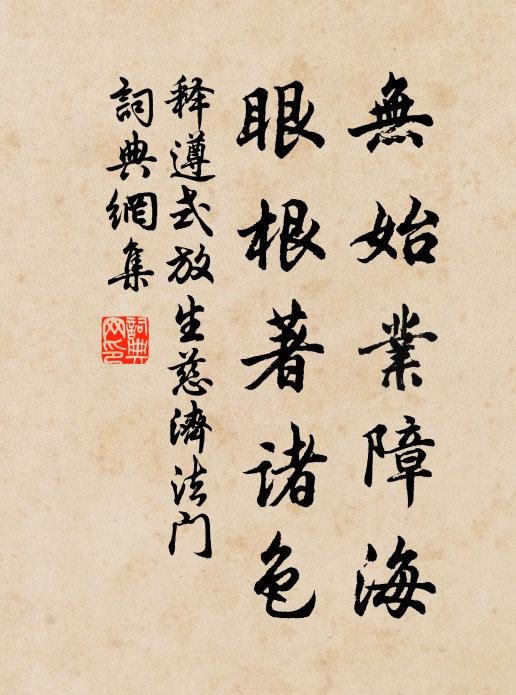 無始業障海
眼根著諸色
释遵式放生慈濟法门
詞典網集
詞典
网印